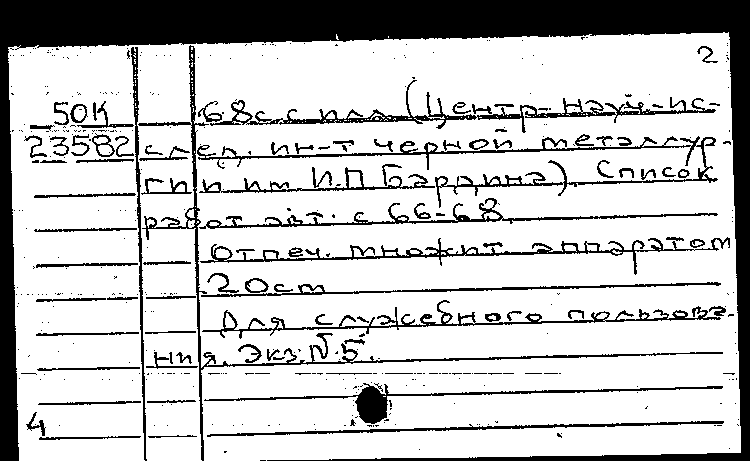 2
50К 68с с илл (Центр- науч.-ис-
23582 след. ин-т черной металлур-
гии им И.П Бардина). Список
работ авт. с 66-68.
Отпеч. множит аппаратом
20ст
Для служебного пользова-
ния. Экз. N 5.
4